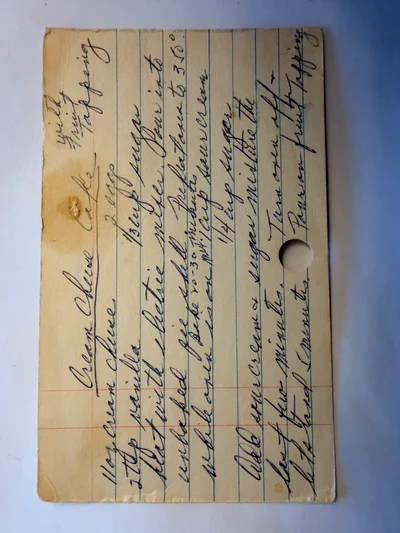 Cream Cheese Cake with Fruit Topping
11 oz cream cheese 2 eggs
2 tsp vanilla 1/3 cup sugar
beat with electric mixer. Pour into
unbaked pie shell. Preheat oven to 350°
Bake 20-30 minutes
while oven is on mix 1 cup sour cream
1/4 cup sugar
Add sour cream & sugar mixture the
last few minutes. Turn oven off &
let stand 5 minutes. Pour on fruit topping